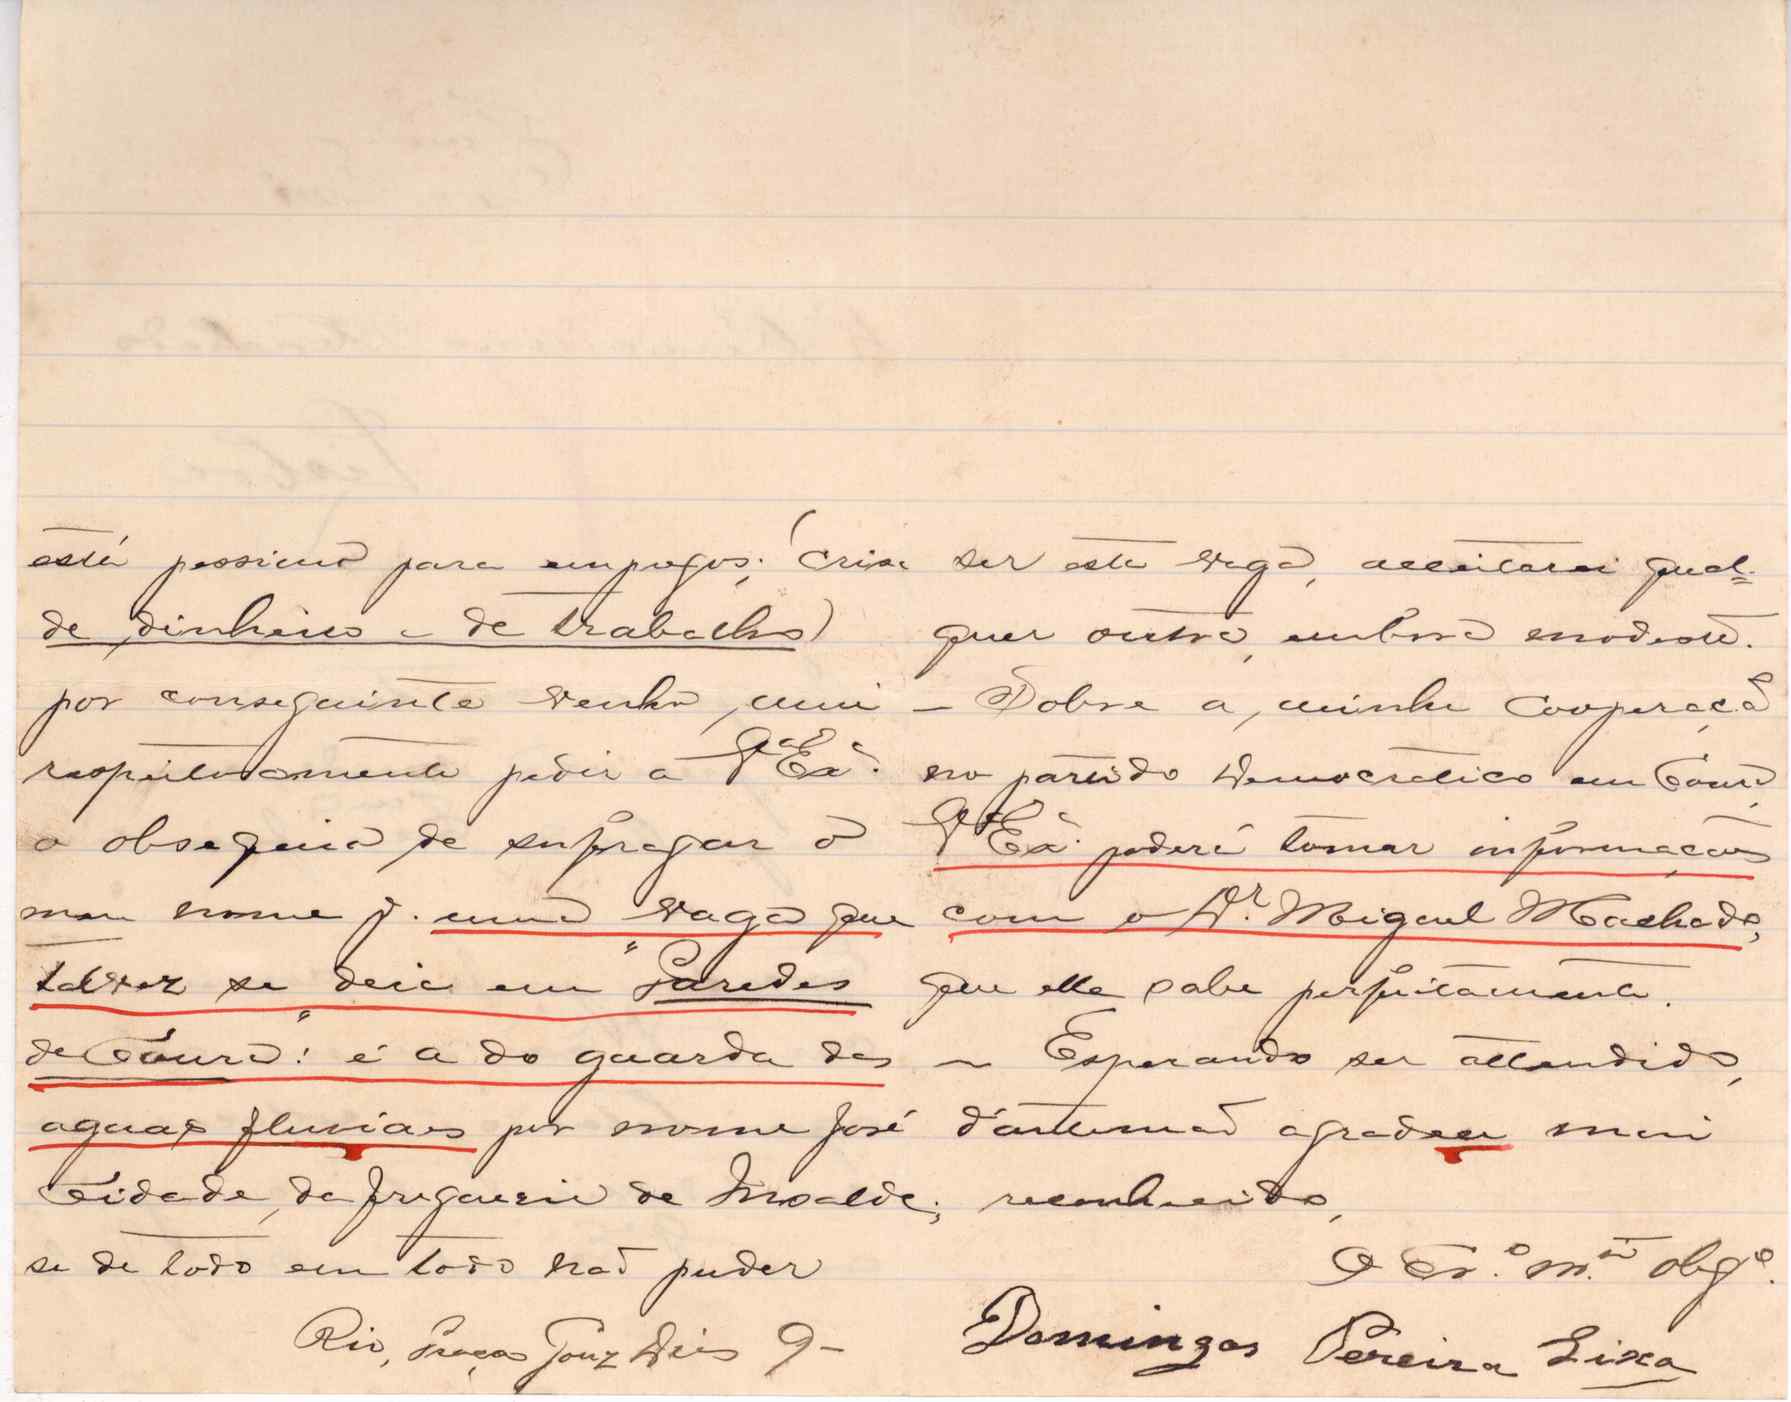 está pessimo para empregos; (crise
de dinheiro e de trabalho)
por conseguinte venho mui
respeitosamente pedir a V.ª Ex.ª
o obsequio de sufragar o
meu nome p. uma vaga que
talvez se deie em "Paredes
de Coura": é a do guarda das
aguas fluviaes por nome José
Cidade, da freguezia de Insalde;
se de todo em todo não puder
ser esta vaga, acceitarei qual=
quer outra, embora modesta.
– Sobre a minha cooperação
no partido Democratico em Coura,
V.ª Ex.ª poderá tomar informações
com o Dr. Miguel Machado,
que elle sabe perfeitamente.
– Esperando ser attendido,
d'antemão agradece mui
reconhecido,
O Cr.º m.to obg.º
Domingos Pereira Lixa
Rio, Praça Gonz Dias 9–